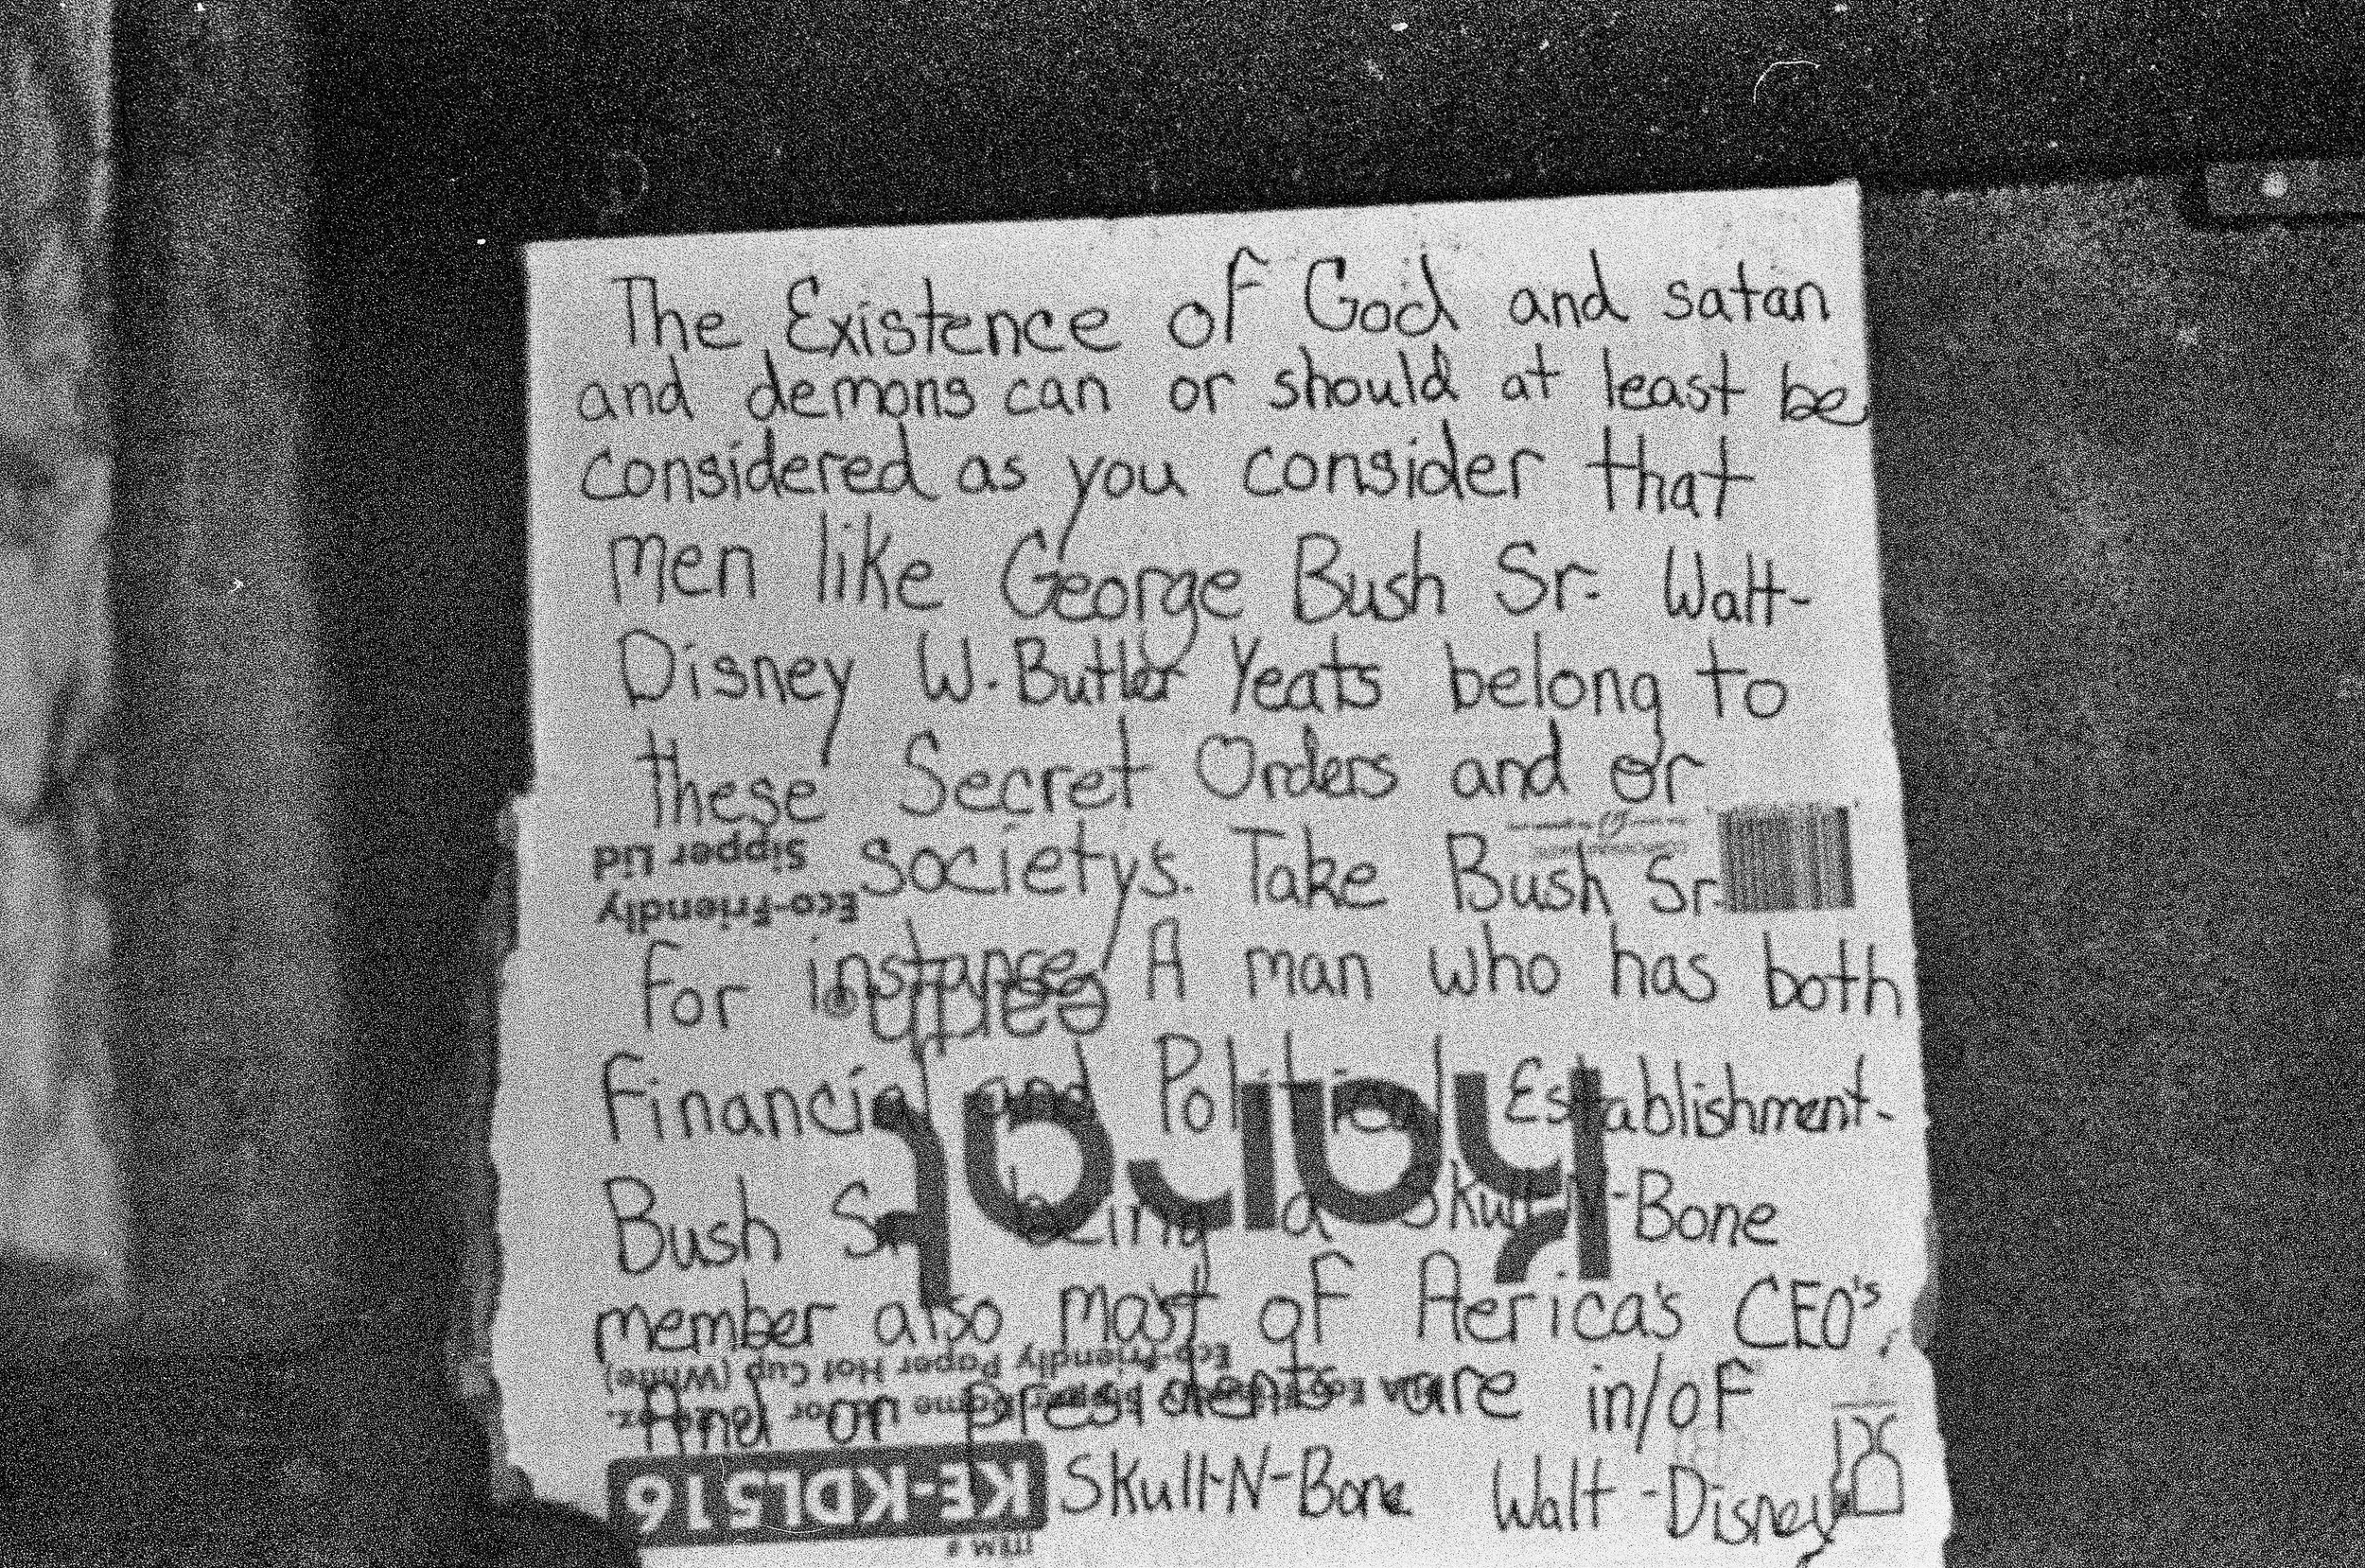 The Existence of God and satan
and demons can or should at least be
considered as you consider that
men like George Bush Sr. Walt-
Disney W. Butler Yeats belong to
these Secret Orders and or
Societys. Take Bush Sr.
For instance, A man who has both
Financial and Political Establishment.
Bush Sr. being a Skull-N-Bone
member also most of Aerica's CEO's,
And or presidents are in/of
Skull-N-Bone Walt-Disney
ITEM #
KE-KDL516
Eco-Friendly Paper Hot Cup (White)
Karat
earth
Eco-Friendly
Sipper Lid